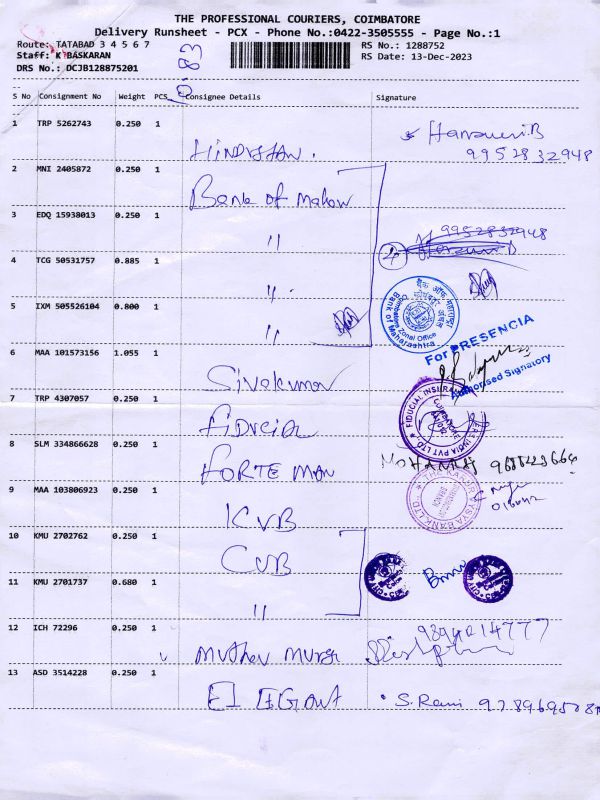 THE PROFESSIONAL COURIERS, COIMBATORE
Delivery Runsheet - PCX - Phone No.:0422-3505555 - Page No.:1
Route: TATABAD 3 4 5 6 7
RS No.: 1288752
Staff: K BASKARAN
RS Date: 13-Dec-2023
DRS No.: DCJB128875201
S No Consignment No Weight PCS Consignee Details Signature
1 TRP 5262743 0.250 1
9952832948
2 MNI 2405872 0.250 1
Bank of
3 EDQ 15938013 0.250 1
9952832948
"
4 TCG 50531757 0.885 1
"
5 IXM 505526104 0.800 1
"
बैंक ऑफ महाराष्ट्र
Coimbatore Zonal Office
Bank of Maharashtra
For PRESENCIA
Authorised Signatory
6 MAA 101573156 1.055 1
Sivakumar
7 TRP 4307057 0.250 1
FIDUCIAL
8 SLM 334866628 0.250 1
FORTE MAN
9 MAA 103806923 0.250 1
KVB
THE KARUR VYSYA BANK LTD
10 KMU 2702762 0.250 1
CUB
11 KMU 2701737 0.680 1
"
12 ICH 72296 0.250 1
9894014777
13 ASD 3514228 0.250 1
S. Rani